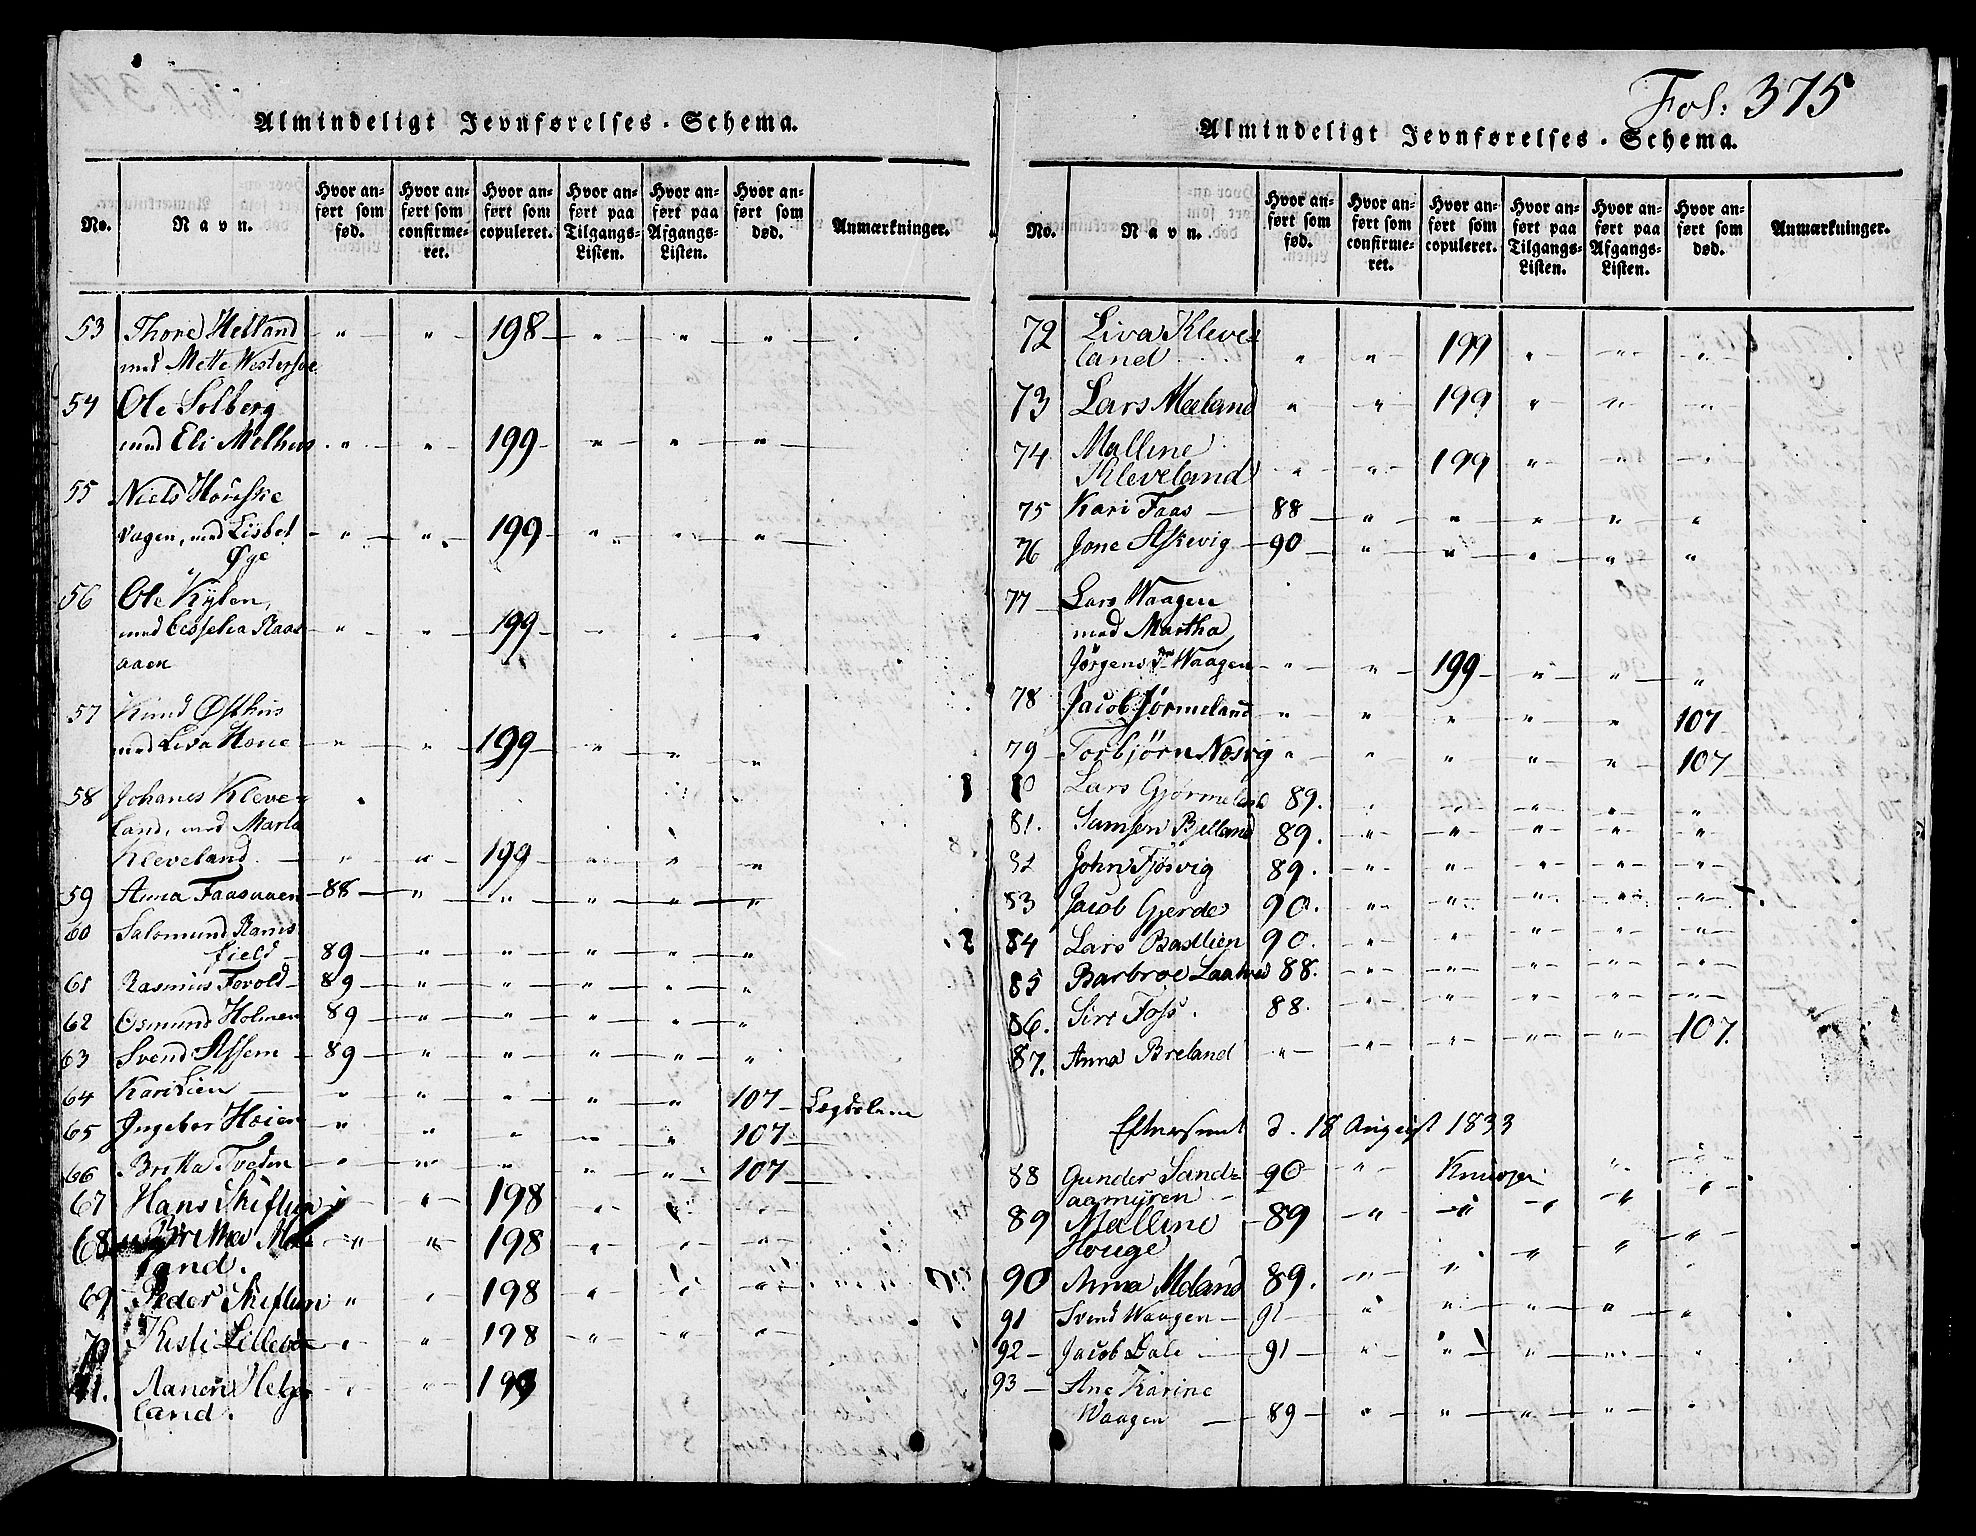 Fol: 375
Almindeligt Jevnførelses-Schema.
No. Navn. Hvor anført som fød. Hvor anført som confirmeret. Hvor anført som copuleret. Hvor anført paa Tilgangs-Listen. Hvor anført paa Afgangs-Listen. Hvor anført som død. Anmærkninger.
53 Thore Helland " " 198 " " "
med Mette Westersøe
54 Ole Solberg
med Eli Melhus " " 199 " " "
55 Niels Houske
vagen, med Lisbet " " 199 " " "
Øye
56 Ole Kylen,
med Cisselia Raas " " 199 " " "
aaen
57 Knud Østhus
med Liva Houe " " 199 " " "
58 Johanes Kleve
land, med Marta
Kleveland " " 199 " " "
59 Anna Faasaaen 88 " " " " "
60 Salomund Rams
field 89 " " " " "
61 Rasmus Tovold 89 " " " " "
62 Osmund Holmen 89 " " " " "
63 Svend Assem 89 " " " " "
64 Kari Lien " " " " " 107 Lægdslem
65 Ingebor Hoien " " " " " 107
66 Britta Tveden " " " " " 107
67 Hans Skiftun " " 198 " " "
68 Britha Mæ " " 198 " " "
land.
69 Peder Skiftun " " 198 " " "
70 Kisti Lillebøe " " 198 " " "
71. Aanen Helge " " 199
land.
Almindeligt Jevnførelses-Schema.
No. Navn. Hvor anført som fød. Hvor anført som confirmeret. Hvor anført som copuleret. Hvor anført paa Tilgangs-Listen. Hvor anført paa Afgangs-Listen. Hvor anført som død. Anmærkninger.
72 Liva Kleve
land " " 199 " " "
73 Lars Mæland " " 199 " " "
74 Malline
Kleveland " " 199 " " "
75 Kari Faas 88 " " " " "
76 Jone Askevig 90 " " " " "
77 Lars Waagen
med Martha
Jørgens Dr Waagen " " 199 " " "
78 Jacob Jørmeland " " " " " 107
79 Torbjørn Nesvig " " " " " 107
80 Lars Gjørmeland 89. " " " " "
81. Samson Bjelland 89. " " " " "
82 John Fjøsvig 89. " " " " "
83 Jacob Gjerde 90. " " " " "
84 Lars Bastlien 90. " " " " "
85 Barbroe Laatved 88. " " " " "
86. Siri Foss. 88. " " " " "
87. Anna Breland " " " " " 107.
Eftersendt d. 18 August 1833
88 Gunder Sand 90 " Knudsen " "
aamyren
89 Malline 89 " " " " "
Houge
90 Anna Meland 89. " " " " "
91 Svend Waagen 91 " " " " "
92 Jacob Dale 91 " " " " "
93 Ane Karine
Waagen 89 " " " " "